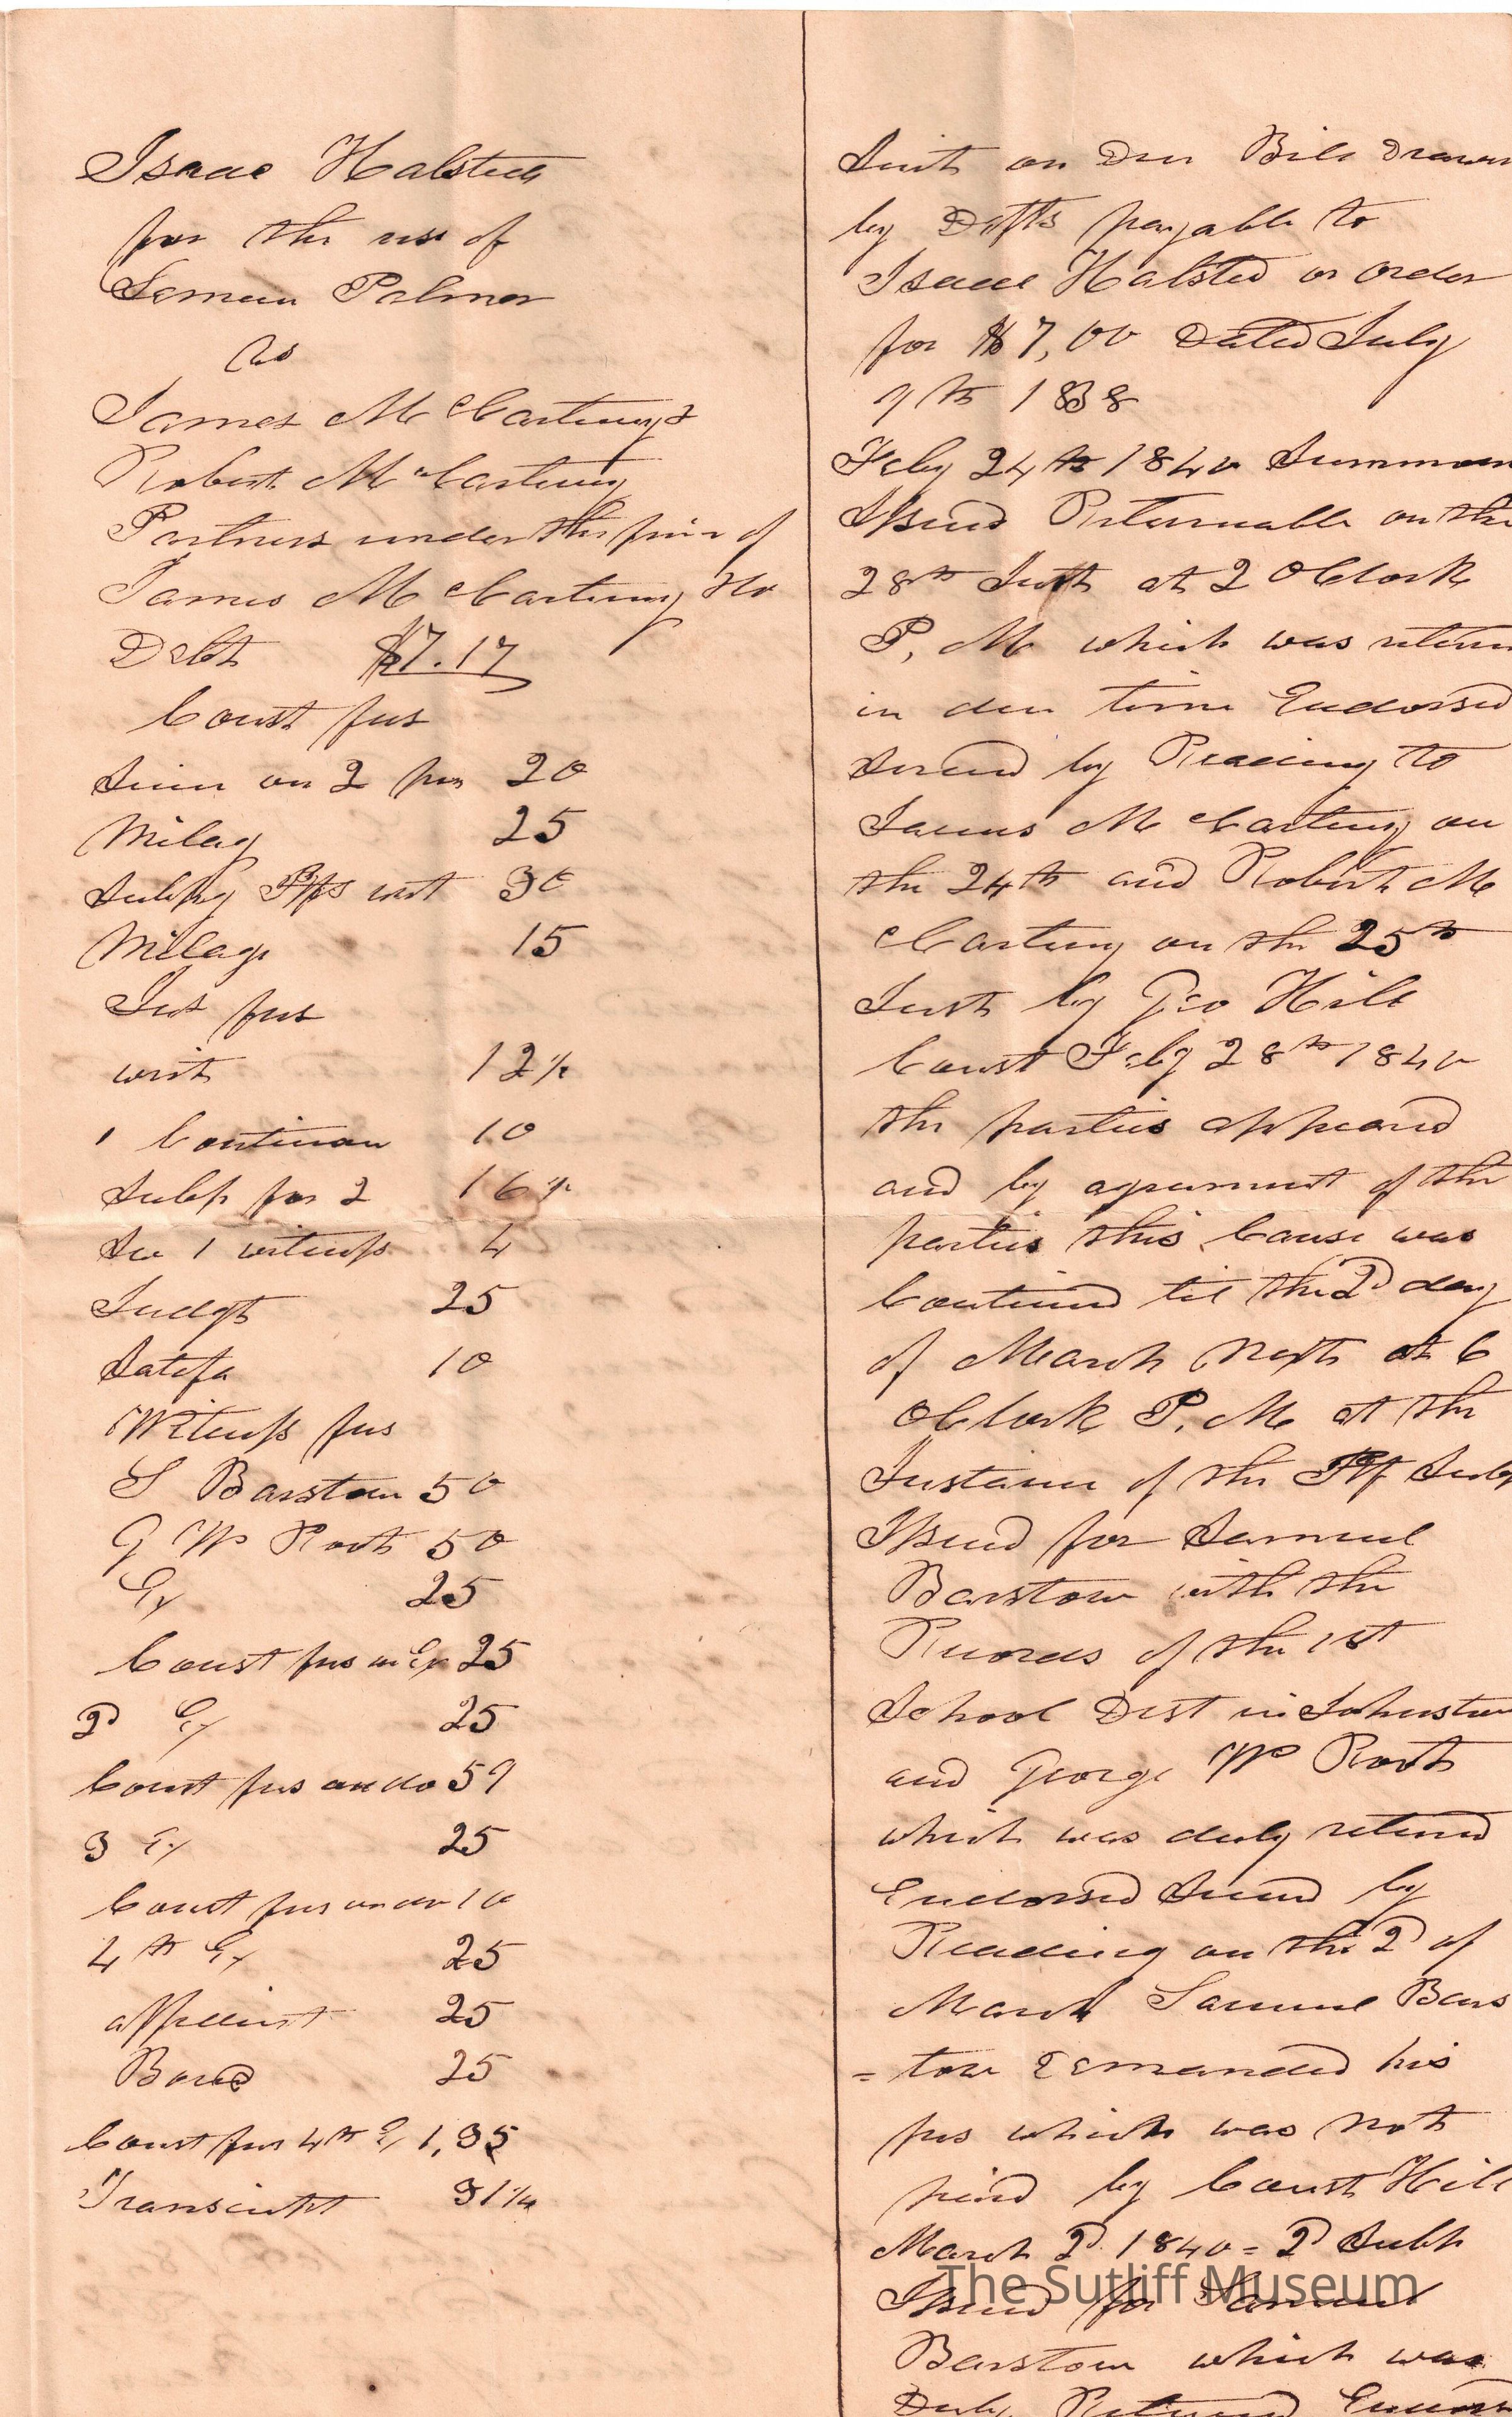 Isaac Halsted
for the use of
Leman Palmer
vs
James McCartney &
Robert McCartney
Partners under the firm of
James McCartney & Co
Debt $7.17
Const fees
Serv on 2 pers 20
Milag 25
Subpg Plfs wit 30
Milage 15
Jus fees
writ 12½
1 Continuan 10
Subp for 2 16½
Sw 1 witness 4
Judgt 25
Satsfa 10
Witness fees
S Barstow 50
G W Root 50
Ex 25
Const fees on Ex 25
2d Ex 25
Const fees on do 59
3 Ex 25
Const fees on do 10
4th Ex 25
25
Bond 25
Const fees 4th Ex 1,35
Transcript 31¼
Suit on Due Bill Drawn
by Defts payable to
Isaac Halsted or order
for $7,00 Dated July
9th 1838
Feby 24th 1840 Summons
Issued Returnable on the
28th Inst at 2 OClock
P, M which was return
in due time Endorsed
Served by Reading to
James McCartney on
the 24th and Robert Mc
Cartney on the 25th
Inst by Geo Hill
Const Feby 28th 1840
the parties appeared
and by agreement of the
parties this Cause was
Continued til the 2d day
of March Next at 6
OClock P, M at the
Instance of the Plf Subp
Issued for Samuel
Barstow with the
Records of the 1st
School Dist in Johnston
and George W Root
which was duly returned
Endorsed Served by
Reading on the 2d of
March Samuel Bars
=tow Demanded his
fees which was not
paid by Const Hill
March 2d 1840 = 2d Subp
Issued for Samuel
Barstow which was
Duly Returned Endors
The Sutliff Museum